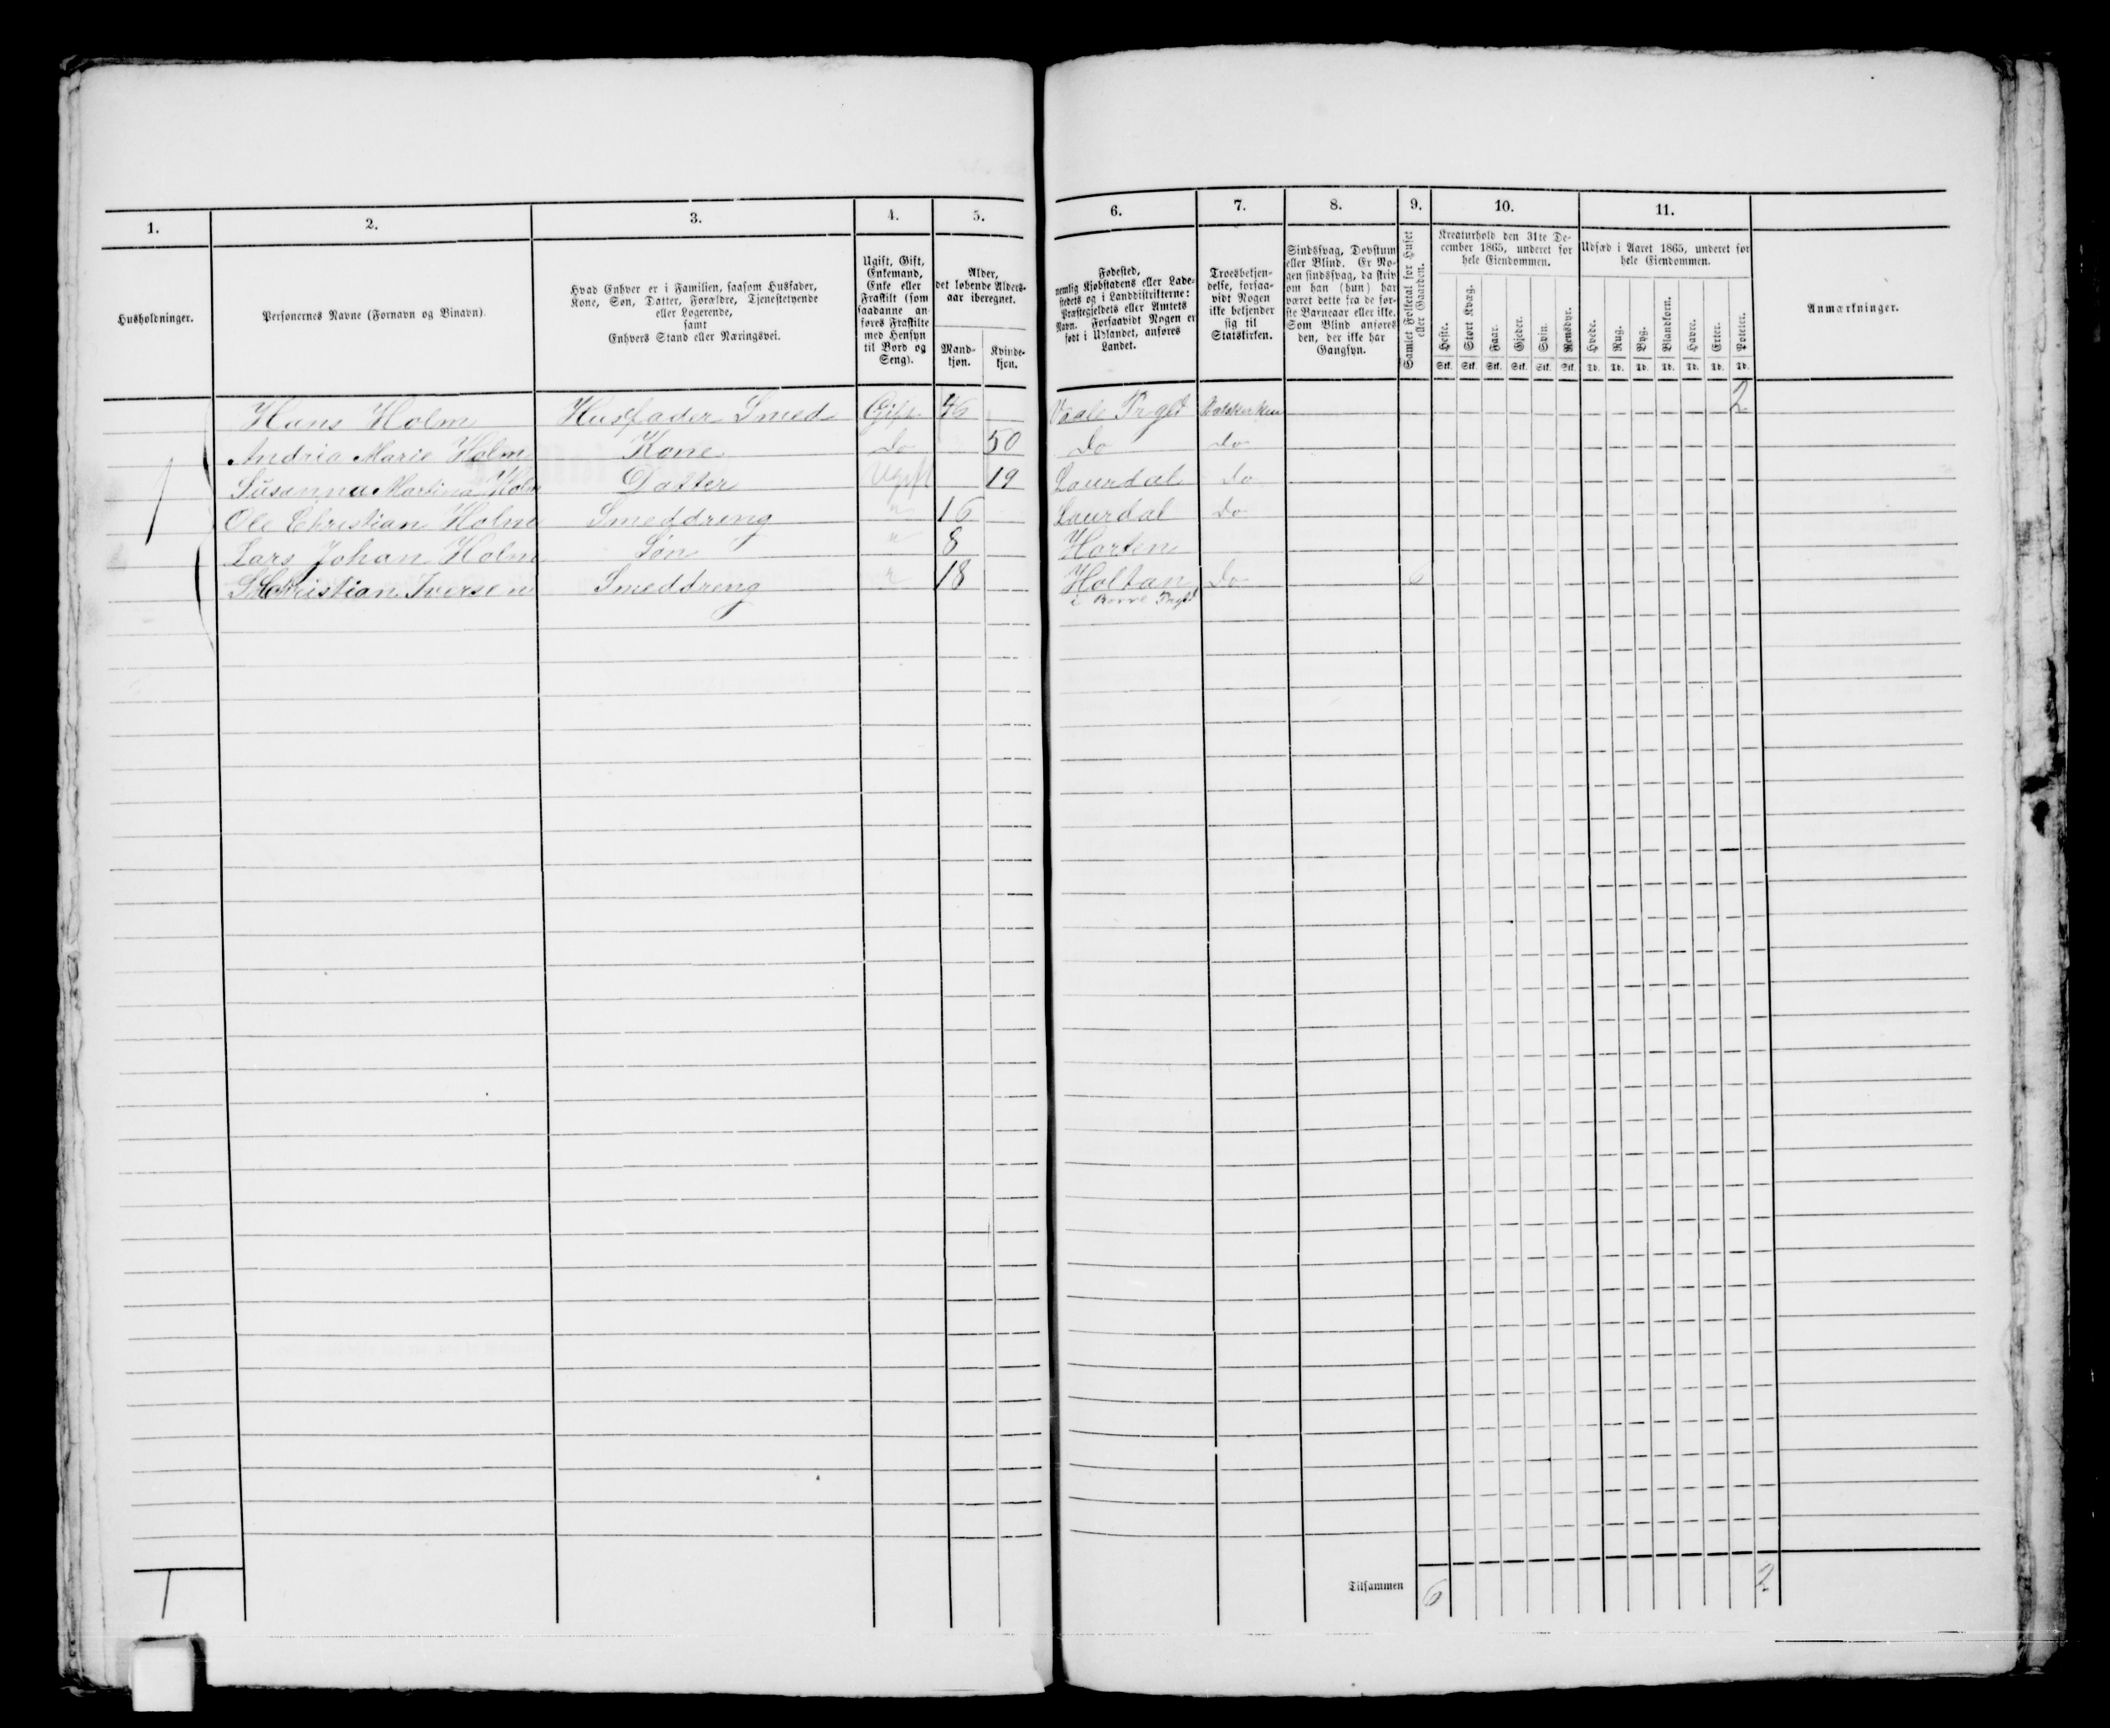 1. 2. 3. 4. 5. 6. 7. 8. 9. 10. 11.
Husholdninger.
Personernes Navne (Fornavn og Binavn)
Hvad Enhver er i Familien, saasom Husfader,
Kone, Søn, Datter, Forældre, Tjenestetyende
eller Logerende,
samt
Enhvers Stand eller Næringsvei.
Ugift, Gift,
Enkemand,
Enke eller
Fraskilt (som
saadanne an-
føres Fraskilte
med Hensyn
til Bord og
Seng).
Alder,
det løbende Alders-
aar iberegnet.
Mand-
kjøn.
Kvinde-
kjøn.
Fødested,
nemlig Kjøbstadens eller Lade-
stedets og i Landdistrikterne:
Præstegjeldets eller Amtets
Navn. Forsaavidt Nogen er
født i Udlandet, anføres
Landet.
Troesbekjen-
delse, forsaa-
vidt Nogen
ikke bekjender
sig til
Statskirken.
Sindssvag, Døvstum
eller Blind. Er No-
gen sindssvag, da skriv
om han (hun) har
været dette fra de før-
ste Barneaar eller ikke.
Som Blind anføres
den, der ikke har
Gangsyn.
Samlet Folketal for Huset
eller Gaarden.
Kreaturhold den 31te De-
cember 1865, underet for
hele Eiendommen.
Heste. Stort Kvæg. Faar. Gjeder. Svin. Rensdyr.
Stk. Stk. Stk. Stk. Stk. Stk.
Udsæd i Aaret 1865, underet for
hele Eiendommen.
Hvede. Rug. Byg. Blandkorn. Havre. Erter. Poteter.
Td. Td. Td. Td. Td. Td. Td.
Anmærkninger.
Hans Holm Husfader Smed Gift 46 Vaale Prgld Statskirken 2
1 Andria Marie Holm Kone do 50 do do
Susanna Martina Holm Datter Ugift 19 Laurdal do
Ole Christian Holm Smeddreng " 16 Laurdal do
Lars Johan Holm Søn " 8 Horten
Christian Iversen Smeddreng " 18 Holtan do 6
i Borre Prgld
1 Tilsammen 6 2